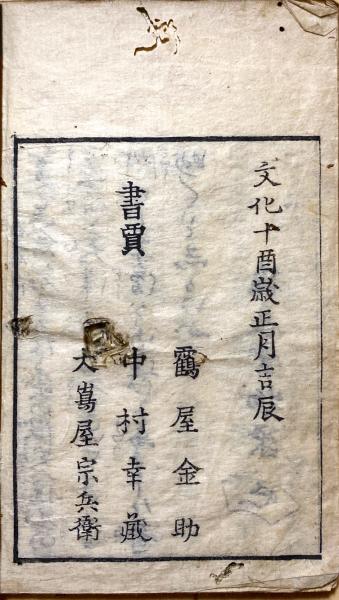 文化十酉歳正月吉辰
書賈
鶴屋金助
中村幸蔵
大嶌屋宗兵衛